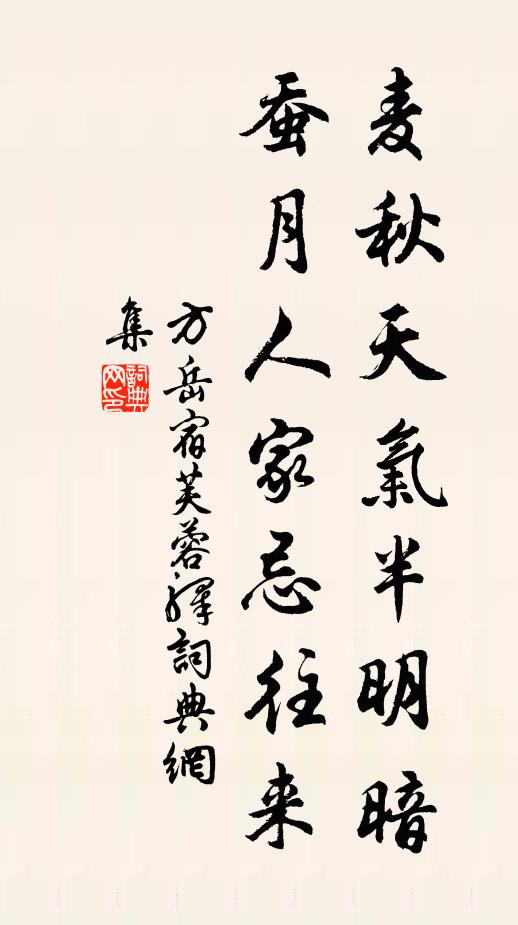 麦秋天氣半明暗
蚕月人家忌往来
方岳宿芙蓉驛詞典網
集
詞典网印